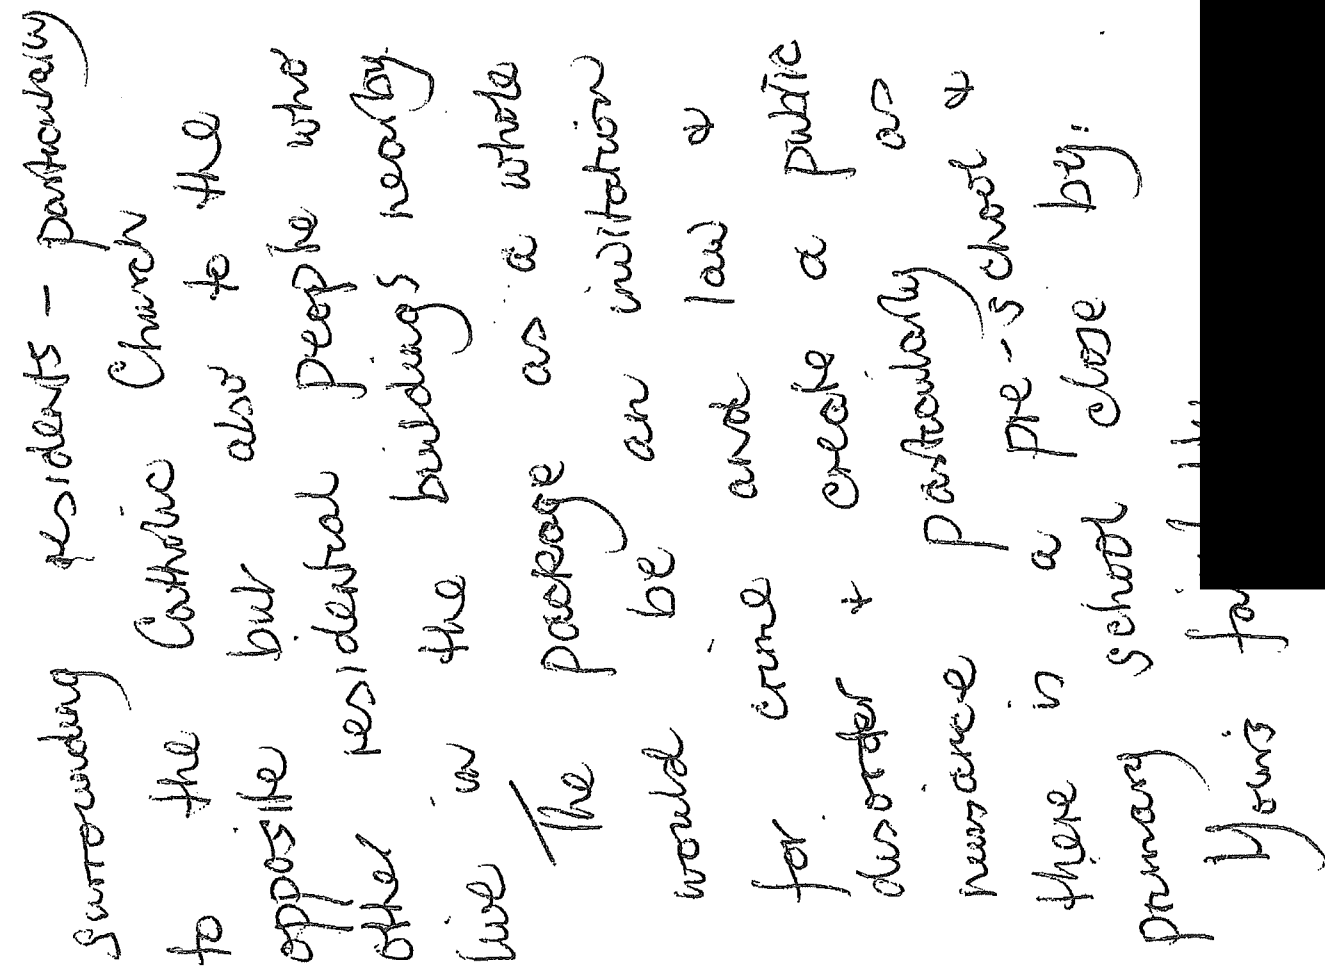 surrounding residents - particularly
to the Catholic Church
opposite but also to the
other residential people who
live in the buildings nearby.
/The package as a whole
would be an invitation
for crime and law &
disorder & create a public
nuisance particularly as
there is a pre-school &
primary school close by.
Yours